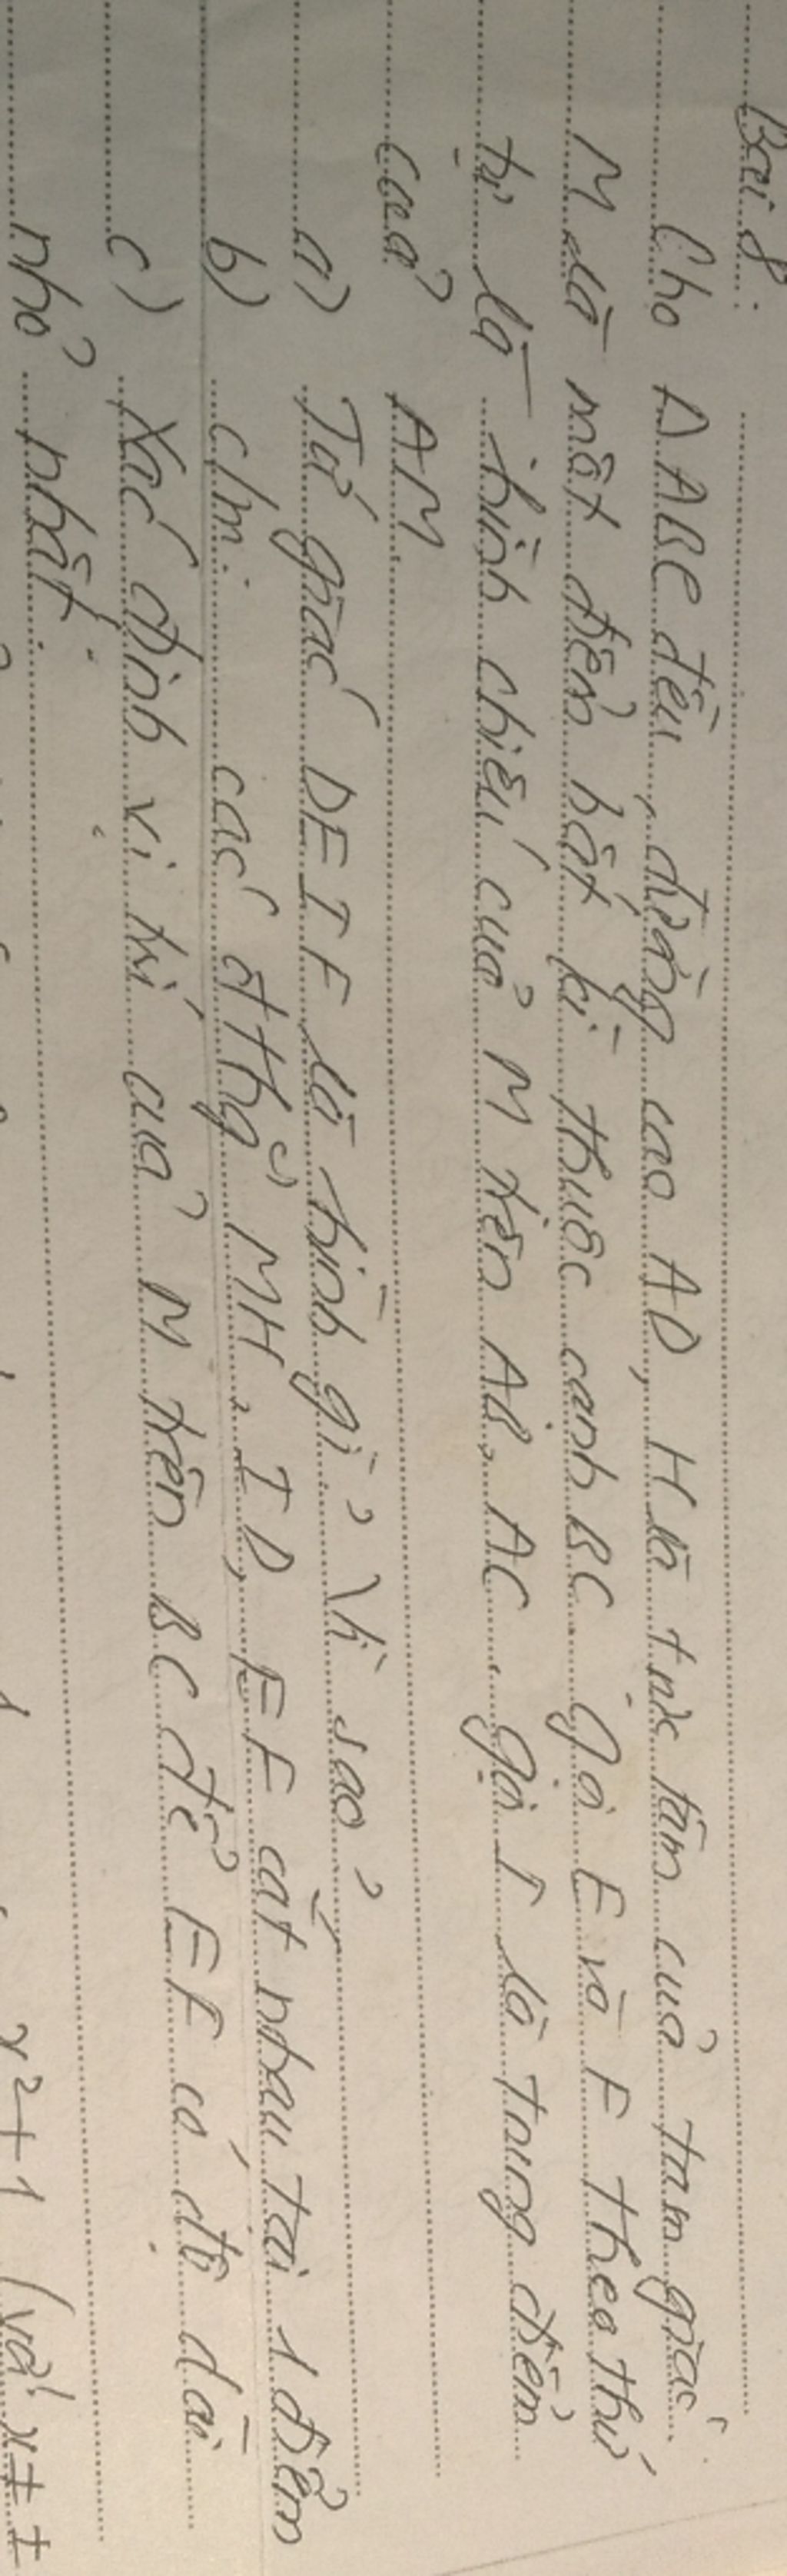 Bài 8:
Cho ΔABC đều, đường cao AD, H là trực tâm của tam giác.
M là một điểm bất kì thuộc cạnh BC. Gọi E và F theo thứ
tự là hình chiếu của M trên AB, AC. gọi I là trung điểm
của AM.
a) Tứ giác DEIF là hình gì? Vì sao?
b) c/m: các đthg MH, ID, EF cắt nhau tại 1 điểm
c) Xác định vị trí của M trên BC để EF có độ dài
nhỏ nhất.
x²+1 (với x ≠ ±